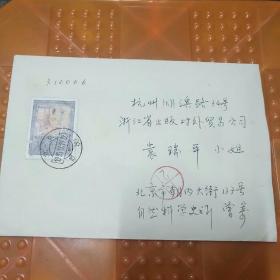 310006
杭州环溪路34号
浙江省出版对外贸易公司
袁瑞平小姐
北京市朝内大街137号
自然科学史所